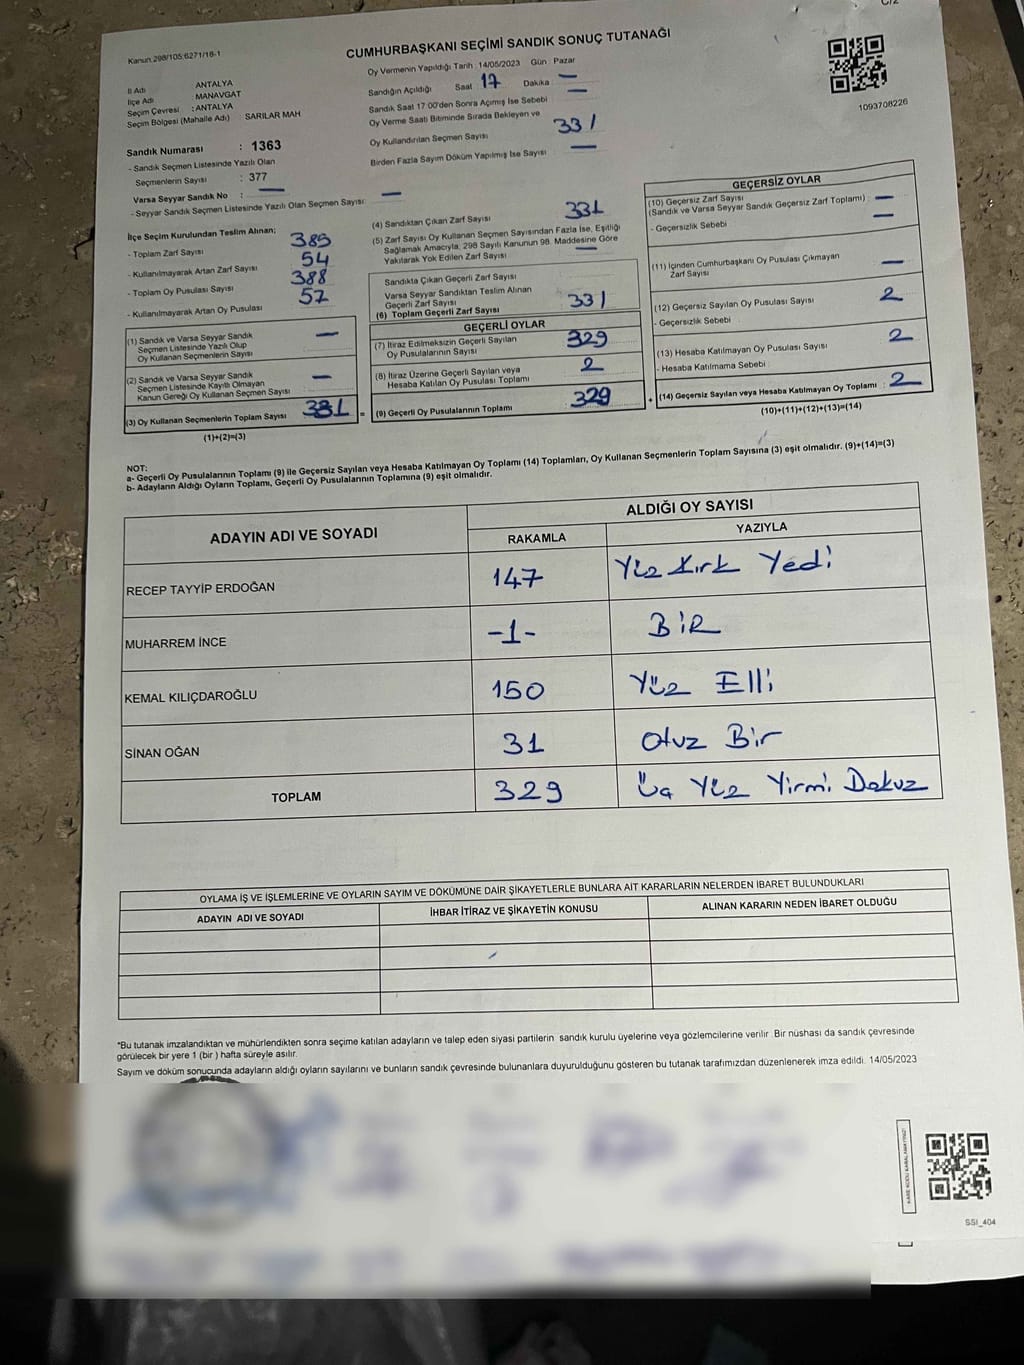 C/2
Kanun.298/105:6271/18-1
CUMHURBAŞKANI SEÇİMİ SANDIK SONUÇ TUTANAĞI
İl Adı ANTALYA
İlçe Adı MANAVGAT
Seçim Çevresi : ANTALYA
Seçim Bölgesi (Mahalle Adı) : SARILAR MAH
Sandık Numarası : 1363
- Sandık Seçmen Listesinde Yazılı Olan
Seçmenlerin Sayısı : 377
Varsa Seyyar Sandık No : —
- Seyyar Sandık Seçmen Listesinde Yazılı Olan Seçmen Sayısı —
Oy Vermenin Yapıldığı Tarih : 14/05/2023 Gün : Pazar
Sandığın Açıldığı Saat 17 Dakika —
Sandık Saat 17:00'den Sonra Açılmış İse Sebebi —
Oy Verme Saati Bitiminde Sırada Bekleyen ve
Oy Kullandırılan Seçmen Sayısı 331
Birden Fazla Sayım Döküm Yapılmış İse Sayısı —
1093708226
İlçe Seçim Kurulundan Teslim Alınan;
- Toplam Zarf Sayısı 385
- Kullanılmayarak Artan Zarf Sayısı 54
- Toplam Oy Pusulası Sayısı 388
- Kullanılmayarak Artan Oy Pusulası 57
(1) Sandık ve Varsa Seyyar Sandık
Seçmen Listesinde Yazılı Olup
Oy Kullanan Seçmenlerin Sayısı —
(2) Sandık ve Varsa Seyyar Sandık
Seçmen Listesinde Kayıtlı Olmayan
Kanun Gereği Oy Kullanan Seçmen Sayısı —
(3) Oy Kullanan Seçmenlerin Toplam Sayısı 331 =
(1)+(2)=(3)
(4) Sandıktan Çıkan Zarf Sayısı 331
(5) Zarf Sayısı Oy Kullanan Seçmen Sayısından Fazla İse, Eşitliği
Sağlamak Amacıyla; 298 Sayılı Kanunun 98. Maddesine Göre
Yakılarak Yok Edilen Zarf Sayısı —
Sandıkta Çıkan Geçerli Zarf Sayısı
Varsa Seyyar Sandıktan Teslim Alınan
Geçerli Zarf Sayısı
(6) Toplam Geçerli Zarf Sayısı 331
GEÇERLİ OYLAR
(7) İtiraz Edilmeksizin Geçerli Sayılan
Oy Pusulalarının Sayısı 329
(8) İtiraz Üzerine Geçerli Sayılan veya
Hesaba Katılan Oy Pusulası Toplamı 2
(9) Geçerli Oy Pusulalarının Toplamı 329 +
GEÇERSİZ OYLAR
(10) Geçersiz Zarf Sayısı
(Sandık ve Varsa Seyyar Sandık Geçersiz Zarf Toplamı) : —
- Geçersizlik Sebebi —
(11) İçinden Cumhurbaşkanı Oy Pusulası Çıkmayan
Zarf Sayısı —
(12) Geçersiz Sayılan Oy Pusulası Sayısı 2
- Geçersizlik Sebebi
(13) Hesaba Katılmayan Oy Pusulası Sayısı 2
- Hesaba Katılmama Sebebi
(14) Geçersiz Sayılan veya Hesaba Katılmayan Oy Toplamı : 2
(10)+(11)+(12)+(13)=(14)
NOT:
a- Geçerli Oy Pusulalarının Toplamı (9) ile Geçersiz Sayılan veya Hesaba Katılmayan Oy Toplamı (14) Toplamları, Oy Kullanan Seçmenlerin Toplam Sayısına (3) eşit olmalıdır. (9)+(14)=(3)
b- Adayların Aldığı Oyların Toplamı, Geçerli Oy Pusulalarının Toplamına (9) eşit olmalıdır.
ADAYIN ADI VE SOYADI
ALDIĞI OY SAYISI
RAKAMLA YAZIYLA
RECEP TAYYİP ERDOĞAN 147 Yüz Kırk Yedi
MUHARREM İNCE -1- BİR
KEMAL KILIÇDAROĞLU 150 Yüz Elli
SİNAN OĞAN 31 Otuz Bir
TOPLAM 329 Üç Yüz Yirmi Dokuz
OYLAMA İŞ VE İŞLEMLERİNE VE OYLARIN SAYIM VE DÖKÜMÜNE DAİR ŞİKAYETLERLE BUNLARA AİT KARARLARIN NELERDEN İBARET BULUNDUKLARI
ADAYIN ADI VE SOYADI İHBAR İTİRAZ VE ŞİKAYETİN KONUSU ALINAN KARARIN NEDEN İBARET OLDUĞU
*Bu tutanak imzalandıktan ve mühürlendikten sonra seçime katılan adayların ve talep eden siyasi partilerin sandık kurulu üyelerine veya gözlemcilerine verilir. Bir nüshası da sandık çevresinde
görülecek bir yere 1 (bir) hafta süreyle asılır.
Sayım ve döküm sonucunda adayların aldığı oyların sayılarını ve bunların sandık çevresinde bulunanlara duyurulduğunu gösteren bu tutanak tarafımızdan düzenlenerek imza edildi. 14/05/2023
SSI_404